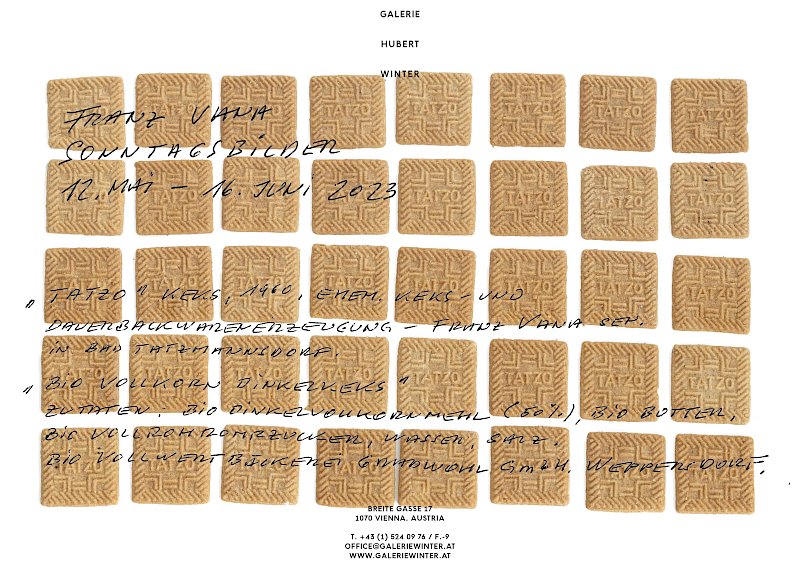 GALERIE
HUBERT
WINTER
FRANZ VANA
SONNTAGSBILDER
12. MAI – 16. JUNI 2023
„TATZO" KEKS, 1960, EHEM. KEKS- UND
DAUERBACKWARENERZEUGUNG – FRANZ VANA SEN.
IN BAD TATZMANNSDORF.
„BIO VOLLKORN DINKELKEKS"
ZUTATEN: BIO DINKELVOLLKORNMEHL (50%), BIO BUTTER,
BIO VOLLROHRROHRZUCKER, WASSER, SALZ.
BIO VOLLWERTBÄCKEREI GRADWOHL GMBH. WEPPERSDORF.
BREITE GASSE 17
1070 VIENNA, AUSTRIA
T. +43 (1) 524 09 76 / F.-9
OFFICE@GALERIEWINTER.AT
WWW.GALERIEWINTER.AT